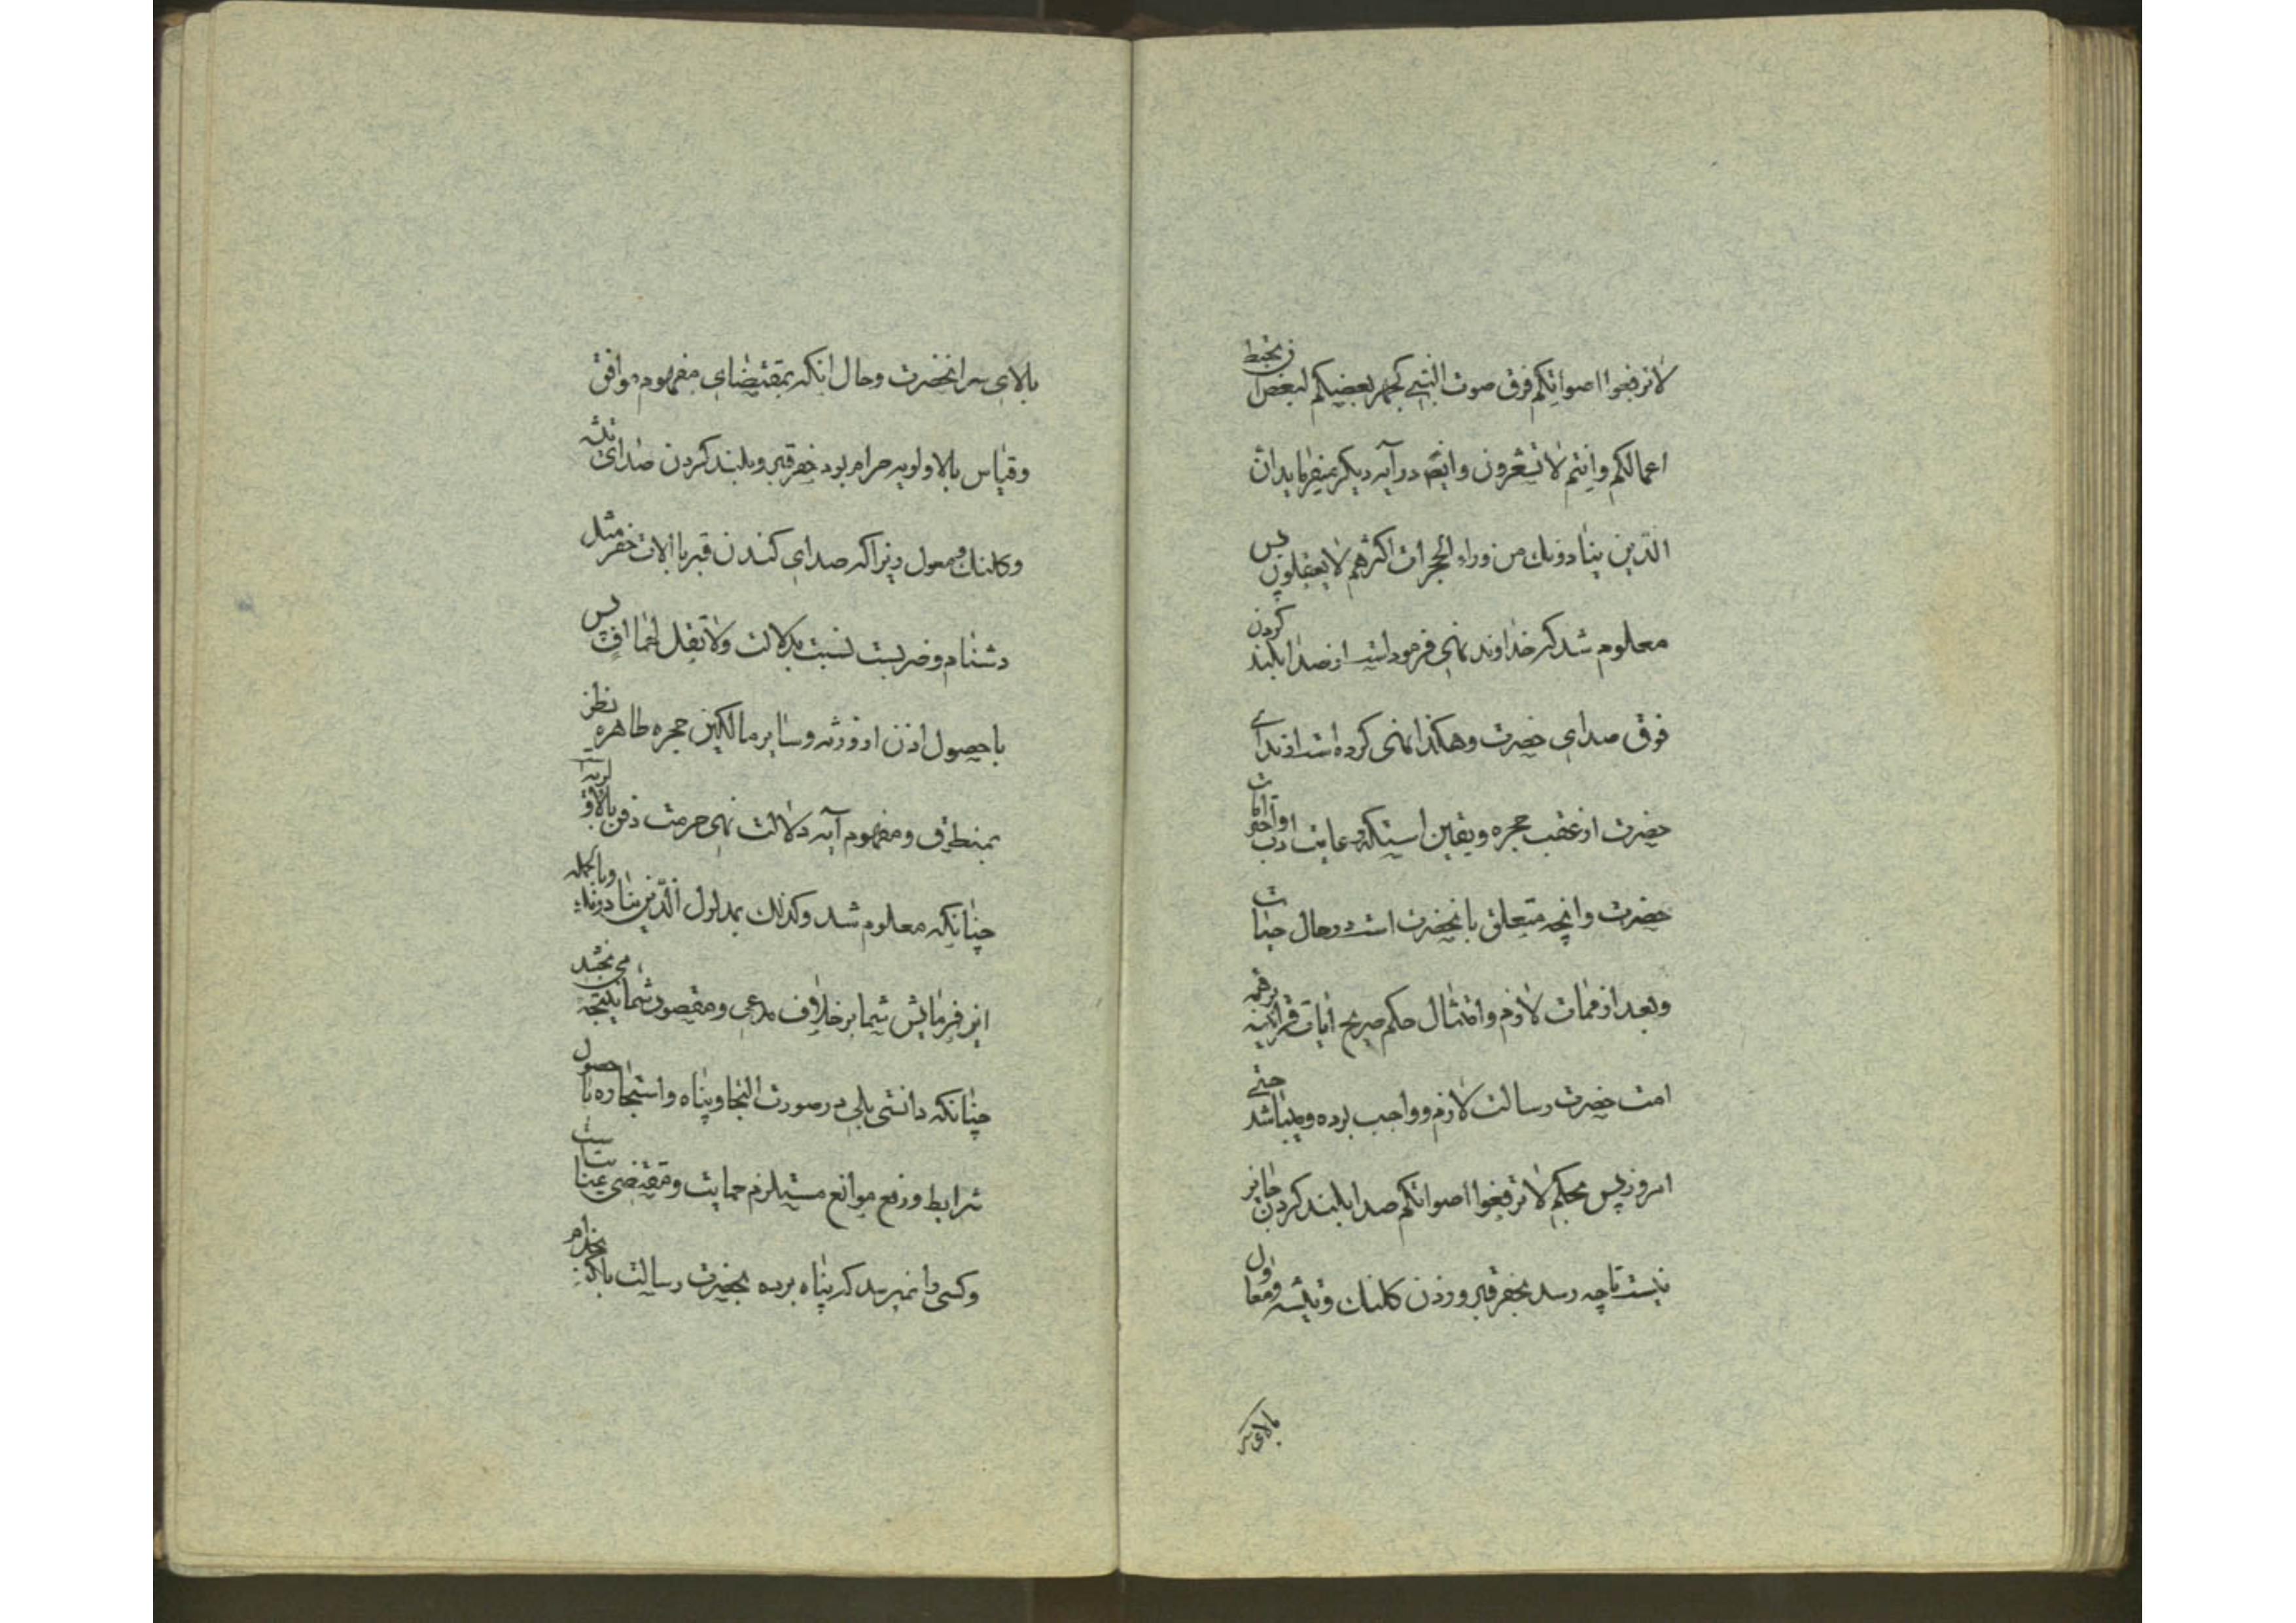 لا ترفعوا اصواتکم فوق صوت النبی کجهر بعضکم لبعض ان تحبط
اعمالکم وانتم لا تشعرون وایضا در آیه دیگر میفرماید ان
الذین ینادونك من وراء الحجرات اکثرهم لا یعقلون پس
معلوم شد که خداوند نهی فرموده است از صدا بلند کردن
فوق صدای حضرت وهکذا نهی کرده است از ندای
حضرت از عقب حجره ویقین است که رعایت ادب واحترامات
حضرت وانچه متعلق بانحضرت است در حال حیات
وبعد از ممات لازم وامتثال حکم صریح ایات قرانیه بر همه
امت حضرت رسالت لازم وواجب بوده ومیباشد حتی
امروز پس بحکم لا ترفعوا اصواتکم صدا بلند کردن جایز
نیست تا چه رسد بحفر قبر وزدن کلنك وتیشه ومعاول
بالای سر
بالای سر انحضرت وحال انکه بمقتضای مفهوم موافق
وقیاس بالاولویه حرام بود حفر قبر وبلند کردن صدای تیشه
وکلنك ومعول زیرا که صدای کندن قبر با الات حفر مثل
دشنام وضربست نسبت بدلالت ولا تقل لهما اف پس
با حصول اذن از ورثه وسایر مالکین حجره طاهره نظر
بمنطوق ومفهوم آیه دلالت نهی حرمت دفن بالاولویه
چنانکه معلوم شد وکذلك بمدلول الذین ینادونك وبالجمله
این فرمایش شما بر خلاف مدعی ومقصود شما نتیجه می بخشد
چنانکه دانستی بلی در صورت التجا وپناه واستجاره با حصول
شرایط ورفع موانع مستلزم حمایت ومقتضی عنایت
وکسی را نمیرسد که پناه برده بحضرت رسالت باکه بخدام